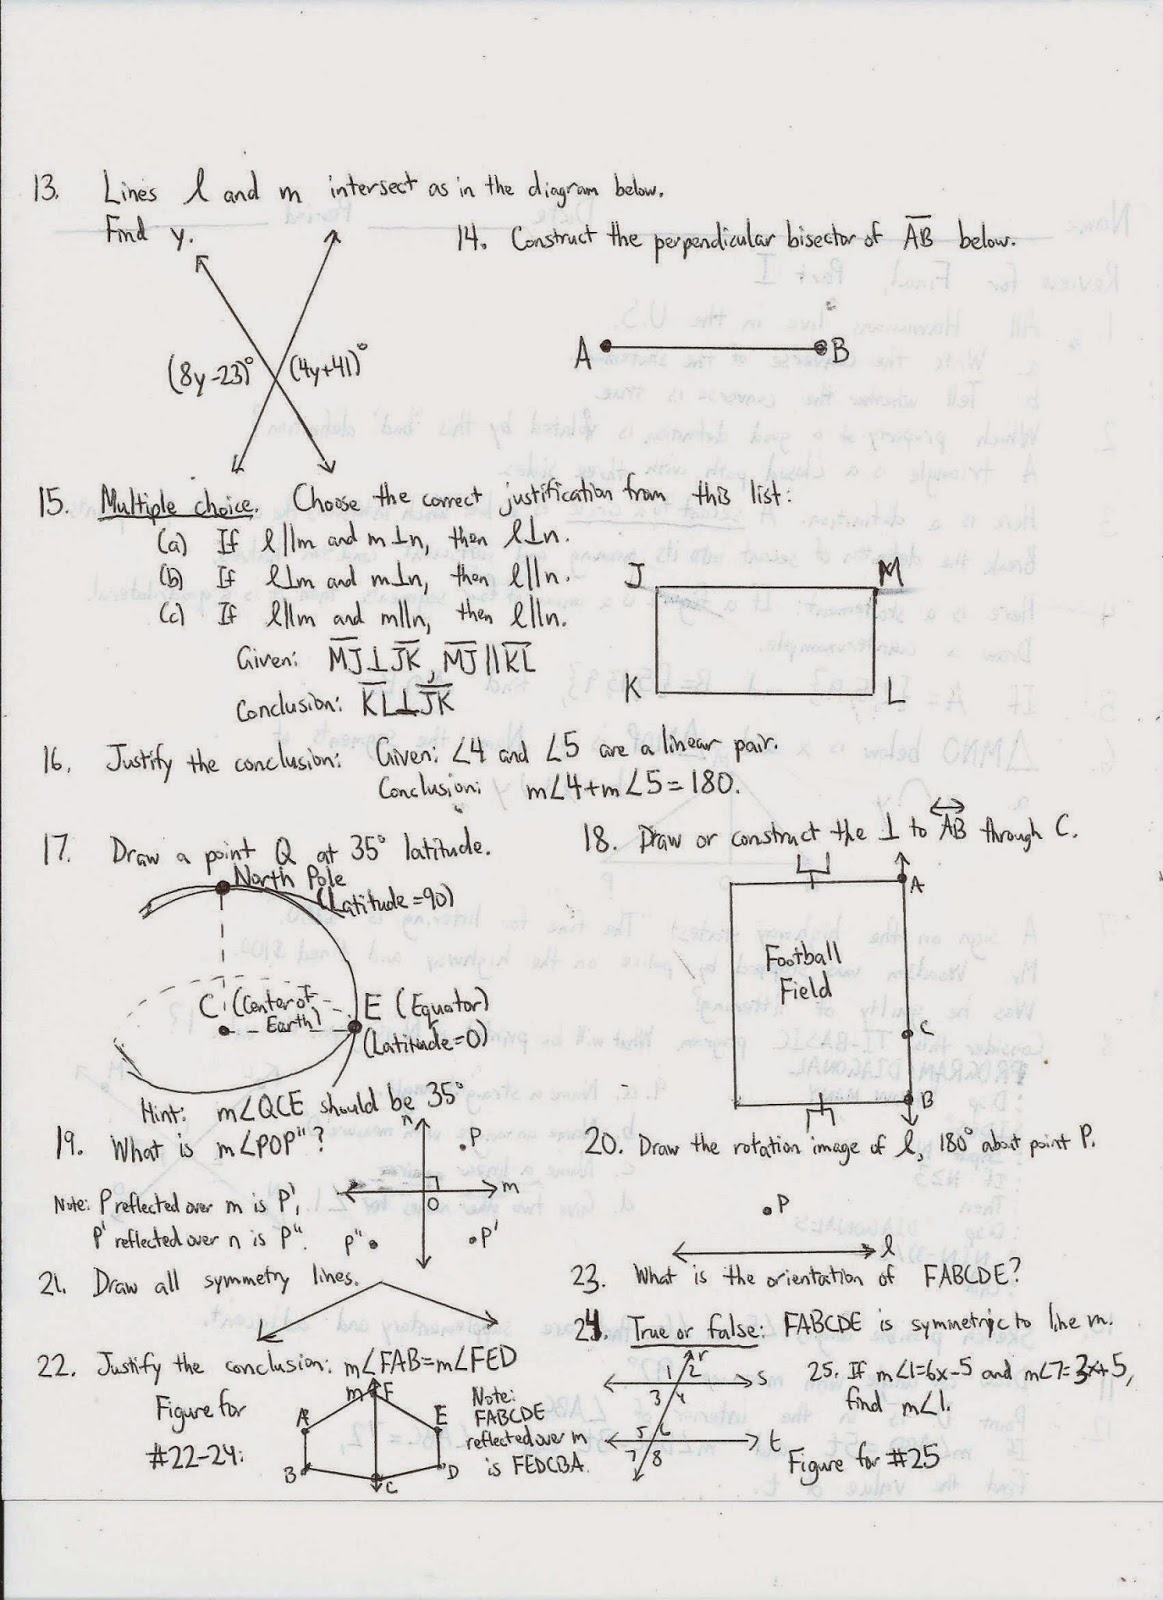 13. Lines l and m intersect as in the diagram below.
Find y.
(8y-23)° (4y+41)°
14. Construct the perpendicular bisector of AB below.
A B
15. Multiple choice. Choose the correct justification from this list:
(a) If l||m and m⊥n, then l⊥n.
(b) If l⊥m and m⊥n, then l||n.
(c) If l||m and m||n, then l||n.
Given: MJ⊥JK, MJ||KL
Conclusion: KL⊥JK
J M
K L
16. Justify the conclusion: Given: ∠4 and ∠5 are a linear pair.
Conclusion: m∠4+m∠5=180.
17. Draw a point Q at 35° latitude.
North Pole
(Latitude=90)
C (Center of
Earth)
E (Equator)
(Latitude=0)
Hint: m∠QCE should be 35°
18. Draw or construct the ⊥ to AB through C.
A
Football
Field
C
B
19. What is m∠POP"?
Note: P reflected over m is P',
P' reflected over n is P".
n
P
m
O
P" P'
20. Draw the rotation image of l, 180° about point P.
P
l
21. Draw all symmetry lines.
22. Justify the conclusion: m∠FAB=m∠FED
Figure for
#22-24:
m F
A E
B D
C
Note:
FABCDE
reflected over m
is FEDCBA.
23. What is the orientation of FABCDE?
24. True or false: FABCDE is symmetric to line m.
r
1 2 s
3 4
5 6 t
7 8
25. If m∠1=6x-5 and m∠7=3x+5,
find m∠1.
Figure for #25